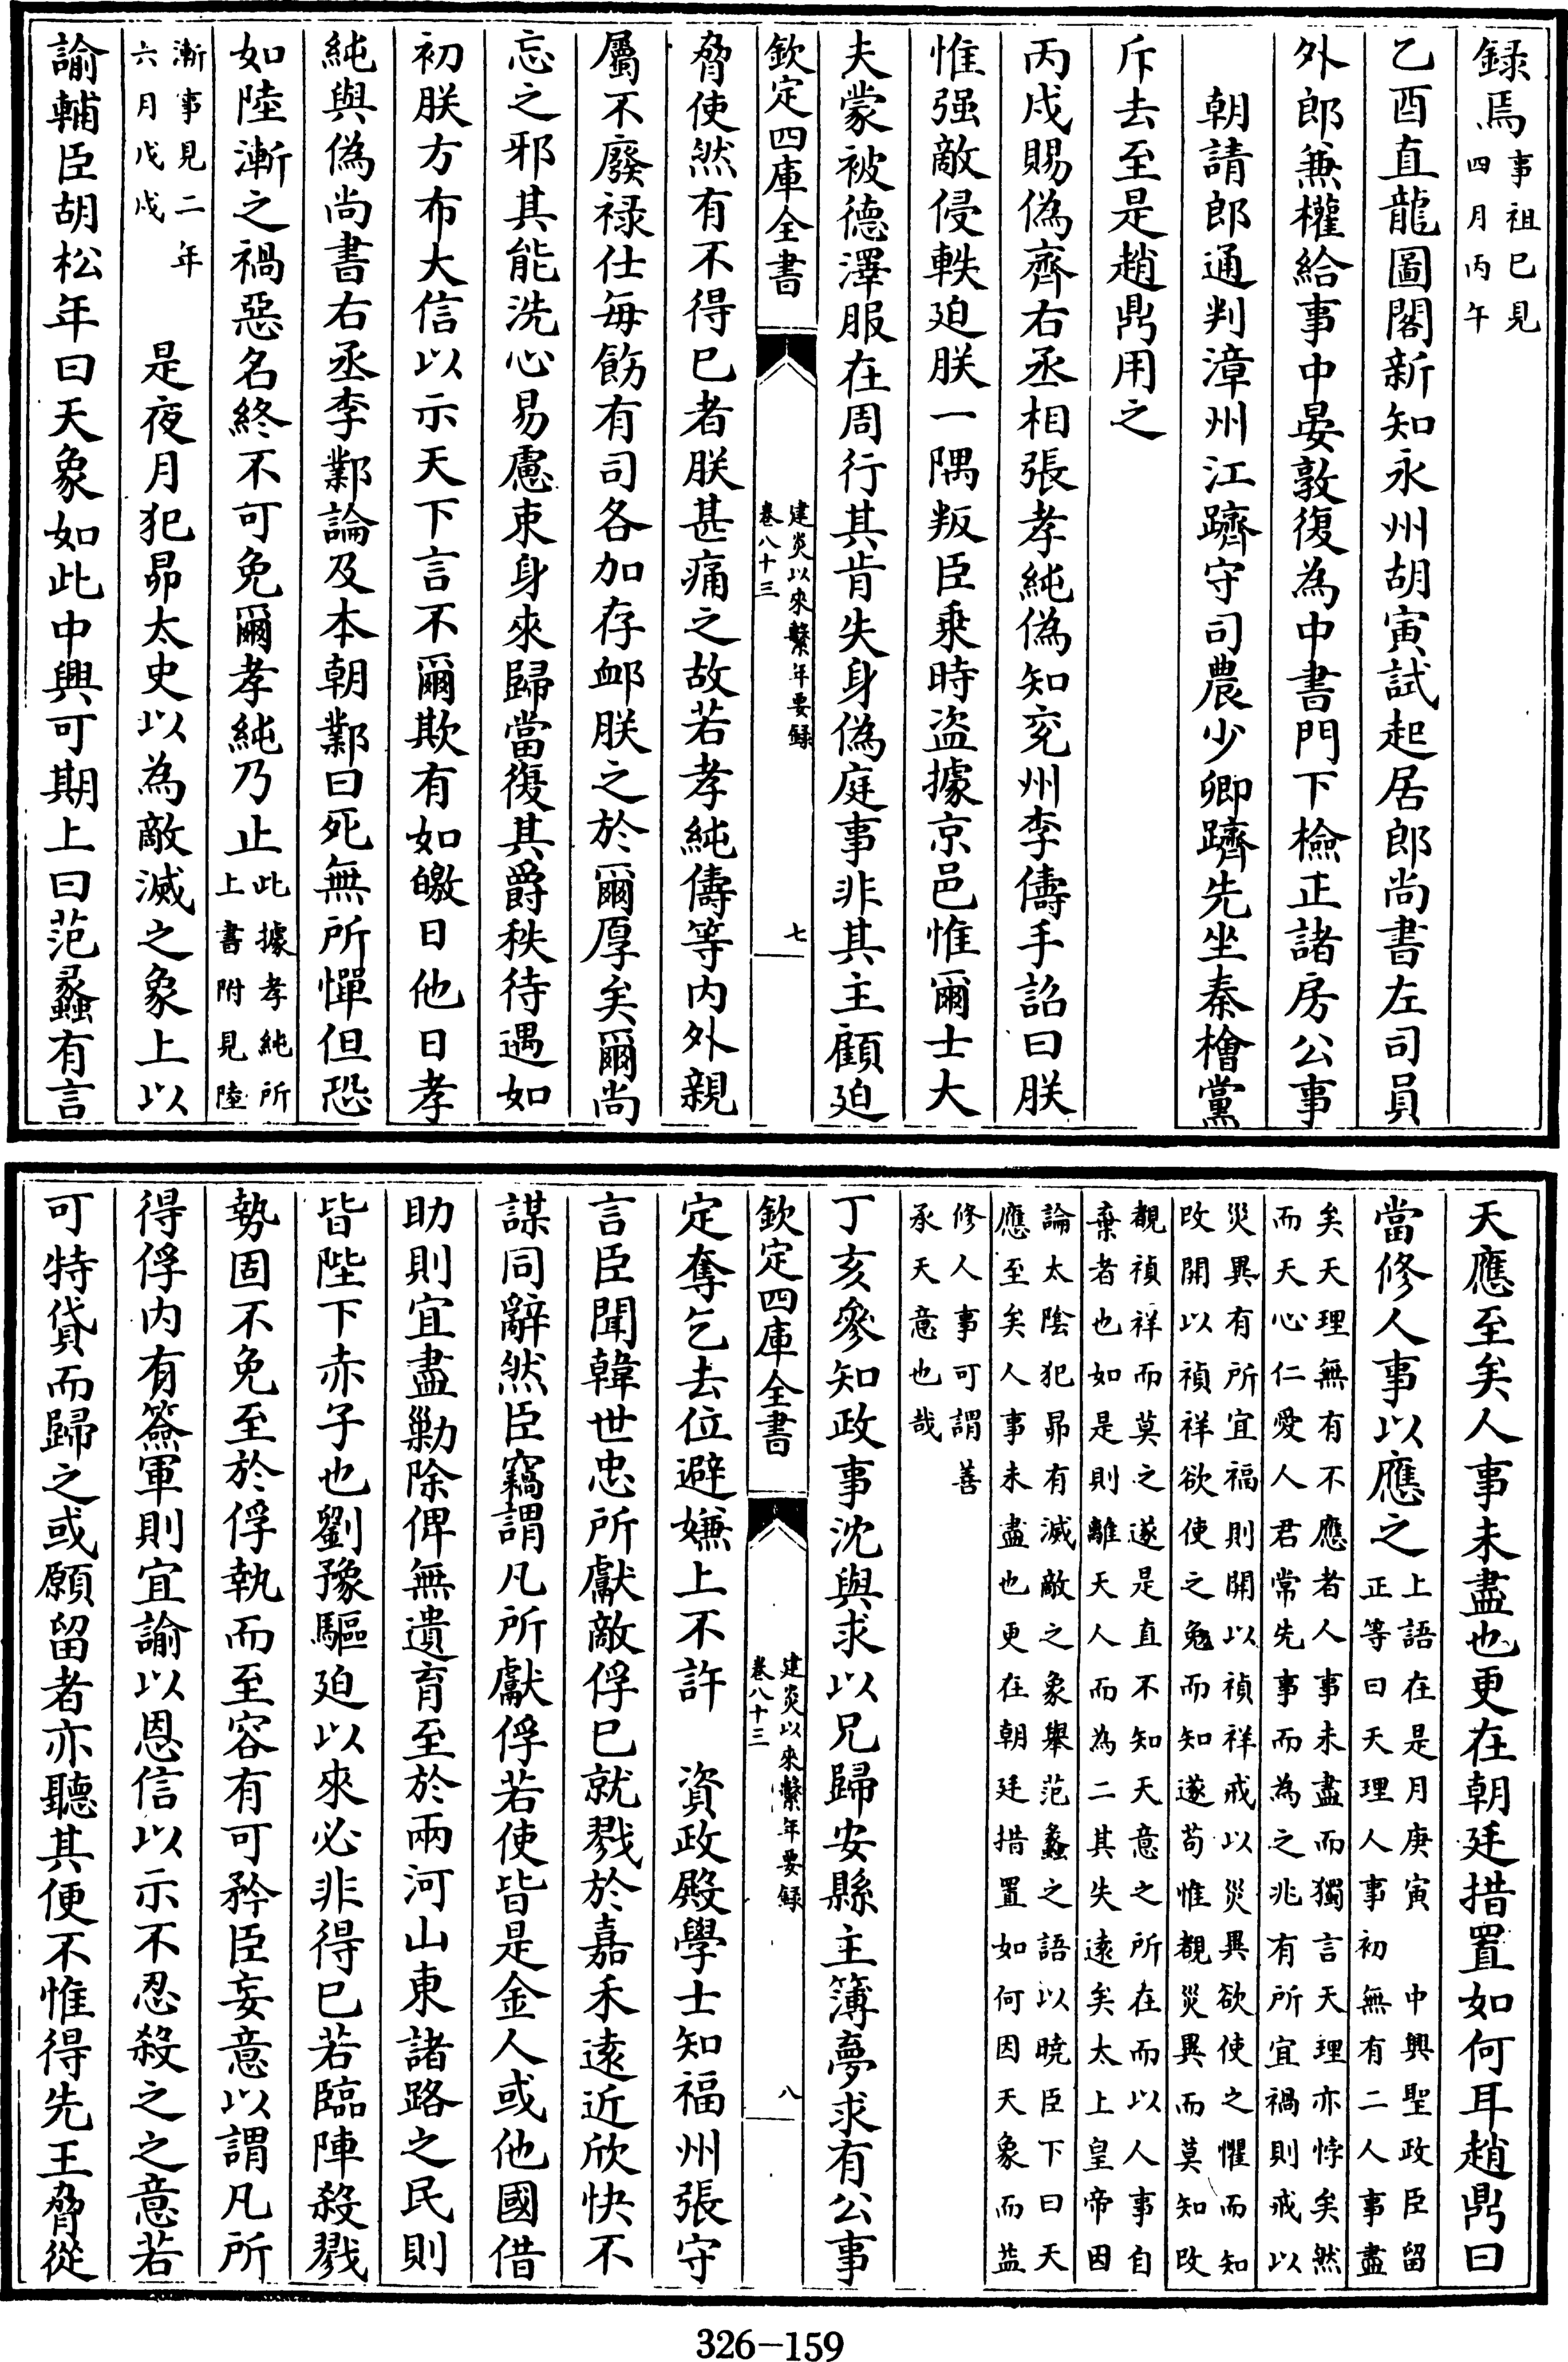 録焉事祖已見
四月丙午
乙酉直龍圖閣新知永州胡寅試起居郎尚書左司員
外郎兼權給事中晏敦復為中書門下檢正諸房公事
朝請郎通判漳州江躋守司農少卿躋先坐秦檜黨
斥去至是趙鼎用之
丙戌賜偽齊右丞相張孝純偽知兖州李儔手詔曰朕
惟强敵侵軼廹朕一隅叛臣乗時盗據京邑惟爾士大
夫蒙被德澤服在周行其肯失身偽庭事非其主顧廹
欽定四庫全書
建炎以來繫年要録
卷八十三
七
脅使然有不得已者朕甚痛之故若孝純儔等内外親
屬不廢禄仕每飭有司各加存卹朕之於爾厚矣爾尚
忘之邪其能洗心易慮束身來歸當復其爵秩待遇如
初朕方布大信以示天下言不爾欺有如皦日他日孝
純與偽尚書右丞李鄴論及本朝鄴曰死無所憚但恐
如陸漸之禍惡名終不可免爾孝純乃止此據孝純所
上書附見陸
漸事見二年
六月戊戌
是夜月犯昴太史以為敵滅之象上以
諭輔臣胡松年曰天象如此中興可期上曰范蠡有言
天應至矣人事未盡也更在朝廷措置如何耳趙鼎曰
當修人事以應之上語在是月庚寅 中興聖政臣留
正等曰天理人事初無有二人事盡
矣天理無有不應者人事未盡而獨言天理亦悖矣然
而天心仁愛人君常先事而為之兆有所宜禍則戒以
災異有所宜福則開以禎祥戒以災異欲使之懼而知
改開以禎祥欲使之勉而知遂苟惟覩災異而莫知改
覩禎祥而莫之遂是直不知天意之所在而以人事自
棄者也如是則離天人而為二其失逺矣太上皇帝因
論太陰犯昴有滅敵之象舉范蠡之語以曉臣下曰天
應至矣人事未盡也更在朝廷措置如何因天象而益
修人事可謂善
承天意也哉
丁亥參知政事沈與求以兄歸安縣主簿夢求有公事
欽定四庫全書
建炎以來繫年要録
卷八十三
八
定奪乞去位避嫌上不許 資政殿學士知福州張守
言臣聞韓世忠所獻敵俘已就戮於嘉禾逺近欣快不
謀同辭然臣竊謂凡所獻俘若使皆是金人或他國借
助則宜盡勦除俾無遺育至於兩河山東諸路之民則
皆陛下赤子也劉豫驅廹以來必非得已若臨陣殺戮
勢固不免至於俘執而至容有可矜臣妄意以謂凡所
得俘内有簽軍則宜諭以恩信以示不忍殺之之意若
可特貸而歸之或願留者亦聽其便不惟得先王脅從
326-159